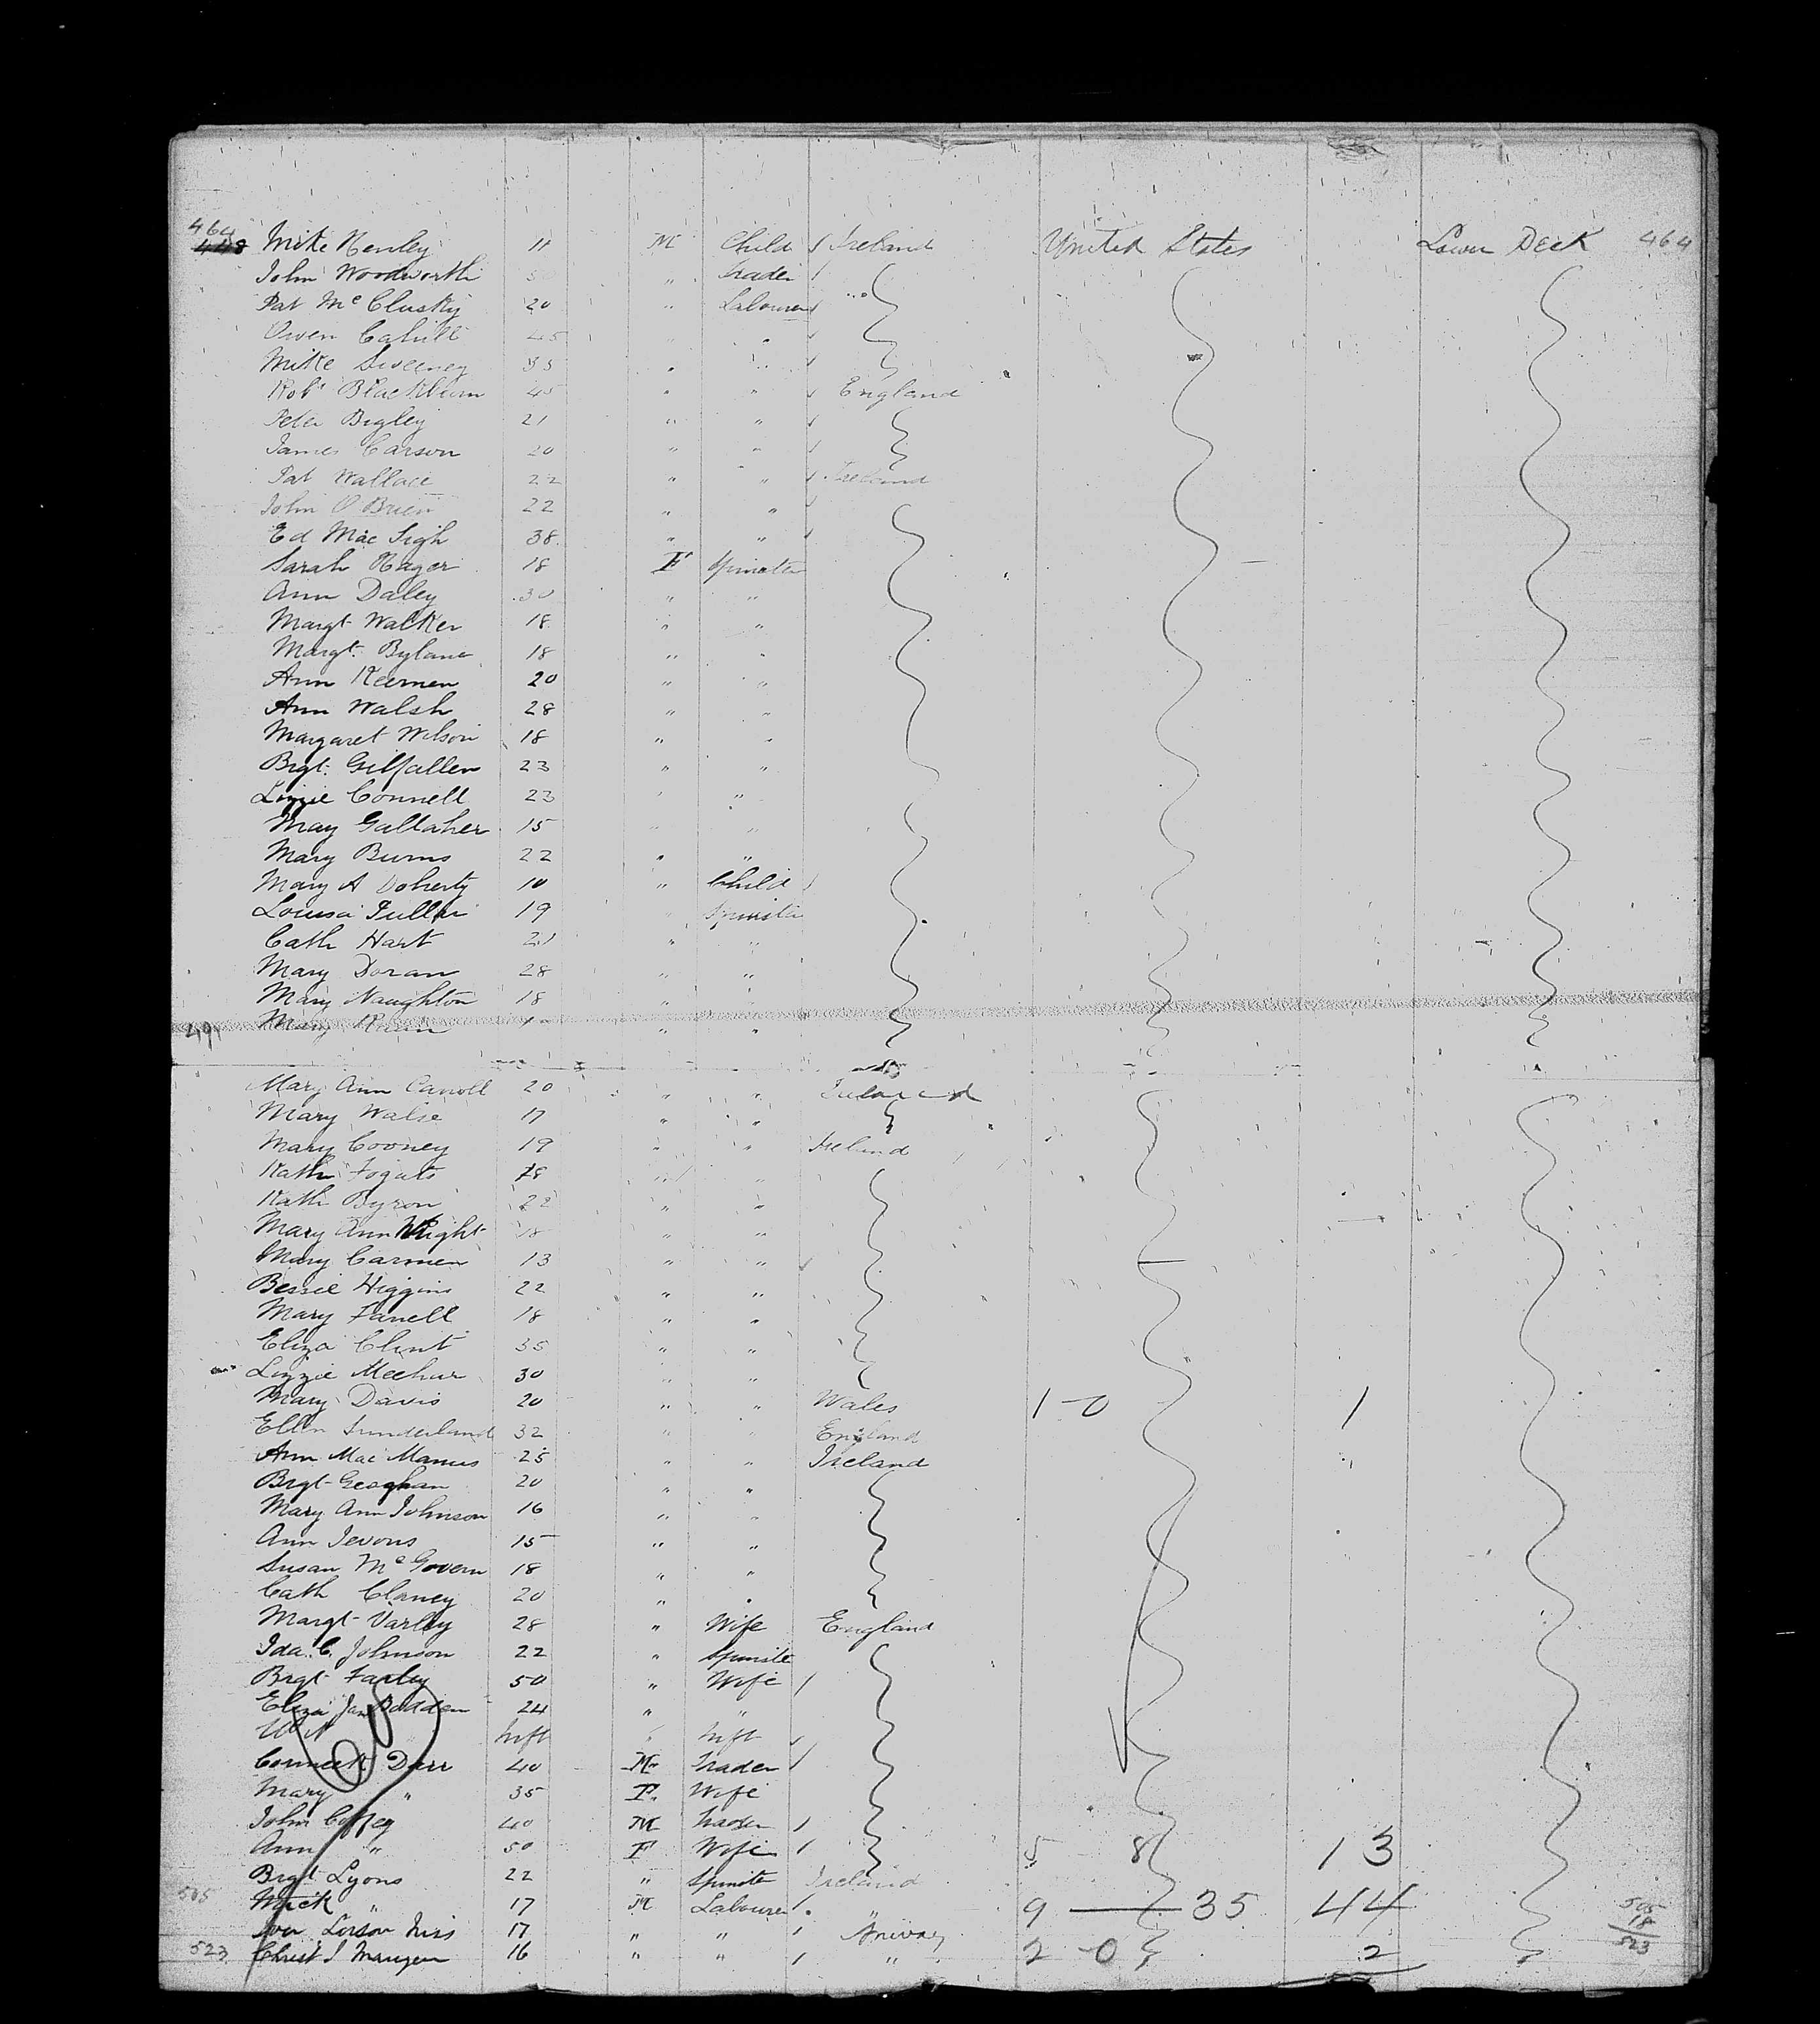 464
448 Mike Henley 11 M Child Ireland United States Lower Deck 464
John Woodworth " Trader
Pat McClusky 20 " Labourer
Owen Cahill 45 " "
Mike Sweeney 35 " "
Robt Blackburn 45 " " England
Peter Bigley 21 " "
James Carson 20 " "
Pat Wallace 22 " " Ireland
John O'Brien 22 " "
Ed Mac 38 " "
Sarah 18 F Spinster
Ann Daley 30 " "
Margt Walker 18 " "
Margt. Bylane 18 " "
Ann Keernen 20 " "
Ann Walsh 28 " "
Margaret Wilson 18 " "
Brgt. Gilfallen 23 " "
Lizzie Connell 23 " "
May Gallaher 15 " "
Mary Burns 22 " "
Mary A Doherty 10 " Child
Louisa 19 " Spinster
Cath Hart 21 " "
Mary Doran 28 " "
Mary Naughton 18 " "
491 Mary " "
Mary Ann Carroll 20 " " Ireland
Mary Walse 17 " "
Mary Cooney 19 " " Ireland
Kath 18 " "
Kath Byron 22 " "
Mary Ann Wright 18 " "
Mary Carmen 13 " "
Bessie Higgins 22 " "
Mary Farrell 18 " "
Eliza Clint 35 " "
Lizzie Meehan 30 " "
Mary Davis 20 " " Wales 1-0 1
Ellen Sunderland 32 " " England
Ann Mac Manus 25 " " Ireland
Brgt Geoghan 20 " "
Mary Ann Johnson 16 " "
Ann Jevons 15 " "
Susan McGovern 18 " "
Cath Clancy 20 " "
Margt Varley 28 " Wife England
Ida. C. Johnson 22 " Spinster
Brgt Farley 50 " Wife
Eliza Jane Badden 24 " "
Inft " Inft
Darr 40 M Trader
Mary " 35 F Wife
John Coffey 40 M Trader
Ann " 50 F Wife 5 8 13
Brgt Lyons 22 " Spinster Ireland
505 Mick " 17 M Labourer " 9 35 44 505
17 " " Norway 18
523 Christ J 16 " " " 2-0 2 523